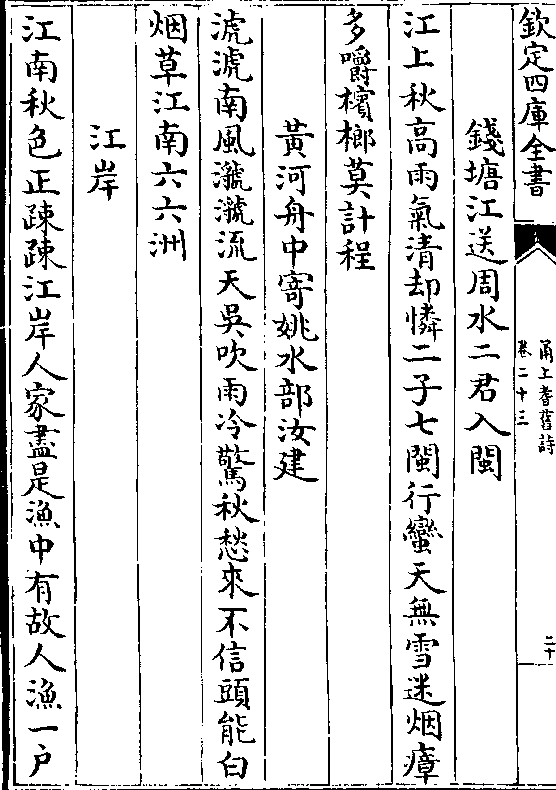 欽定四庫全書
甬上耆舊詩
卷二十三
二十
錢塘江送周水二君入閩
江上秋高雨氣清却憐二子七閩行蠻天無雪迷烟瘴
多嚼檳榔莫計程
黃河舟中寄姚水部汝建
淲淲南風㶁㶁流天吳吹雨冷驚秋愁來不信頭能白
烟草江南六六洲
江岸
江南秋色正踈踈江岸人家盡是漁中有故人漁一戶